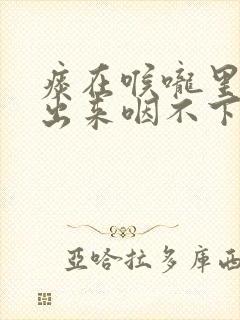 痰在喉嚨里
出来咽不下
亞哈拉多庫西